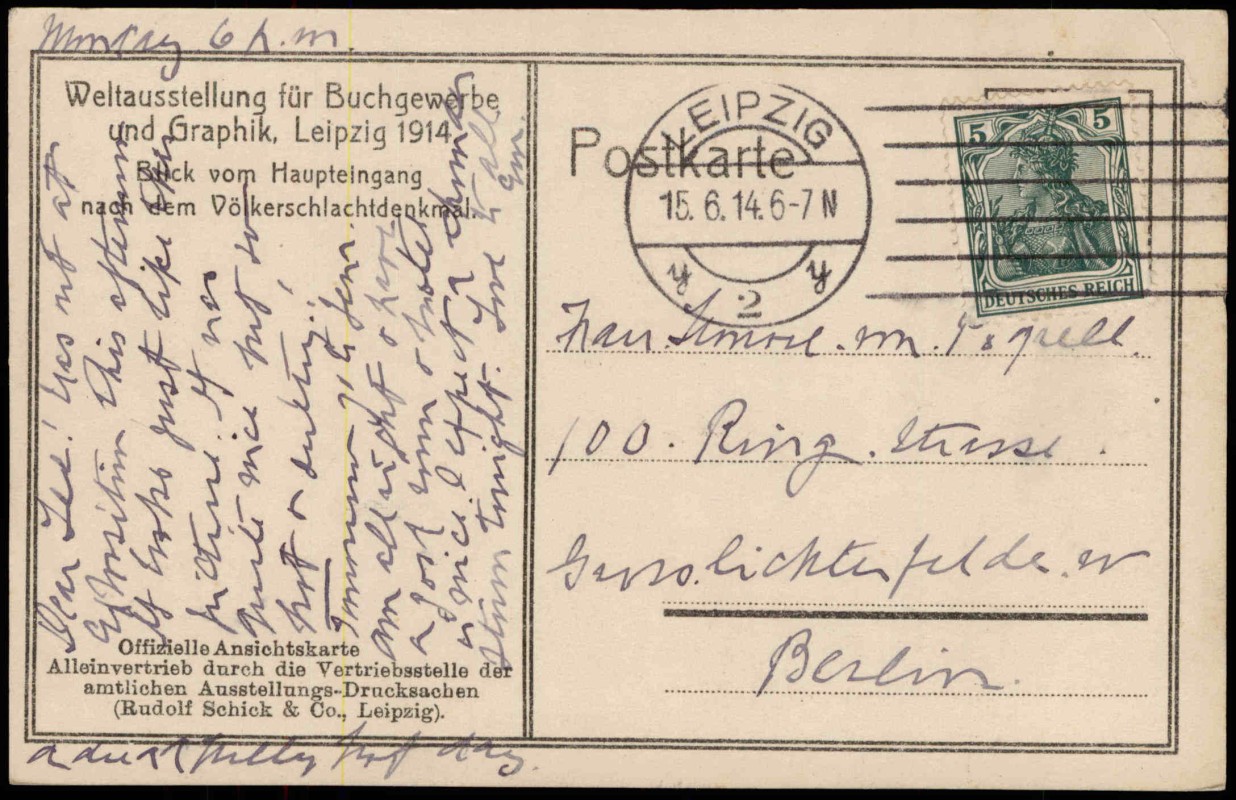 Monday 6 p.m.
Weltausstellung für Buchgewerbe
und Graphik, Leipzig 1914.
Blick vom Haupteingang
nach dem Völkerschlachtdenkmal.
Dear Lee! Was out at
Exposition this afternoon
It looks just like this
picture. It was
quite nice but so
hot & dusty!
am all right & have
a good room & hotel
& nice
storm tonight. Love to all
Offizielle Ansichtskarte
Alleinvertrieb durch die Vertriebsstelle der
amtlichen Ausstellungs-Drucksachen
(Rudolf Schick & Co., Leipzig).
hot day.
Postkarte
LEIPZIG
15.6.14.6-7 N
y y
2
5 5
DEUTSCHES REICH
Frau
100. Ring. Strasse
Gross.lichterfelde.W
Berlin.